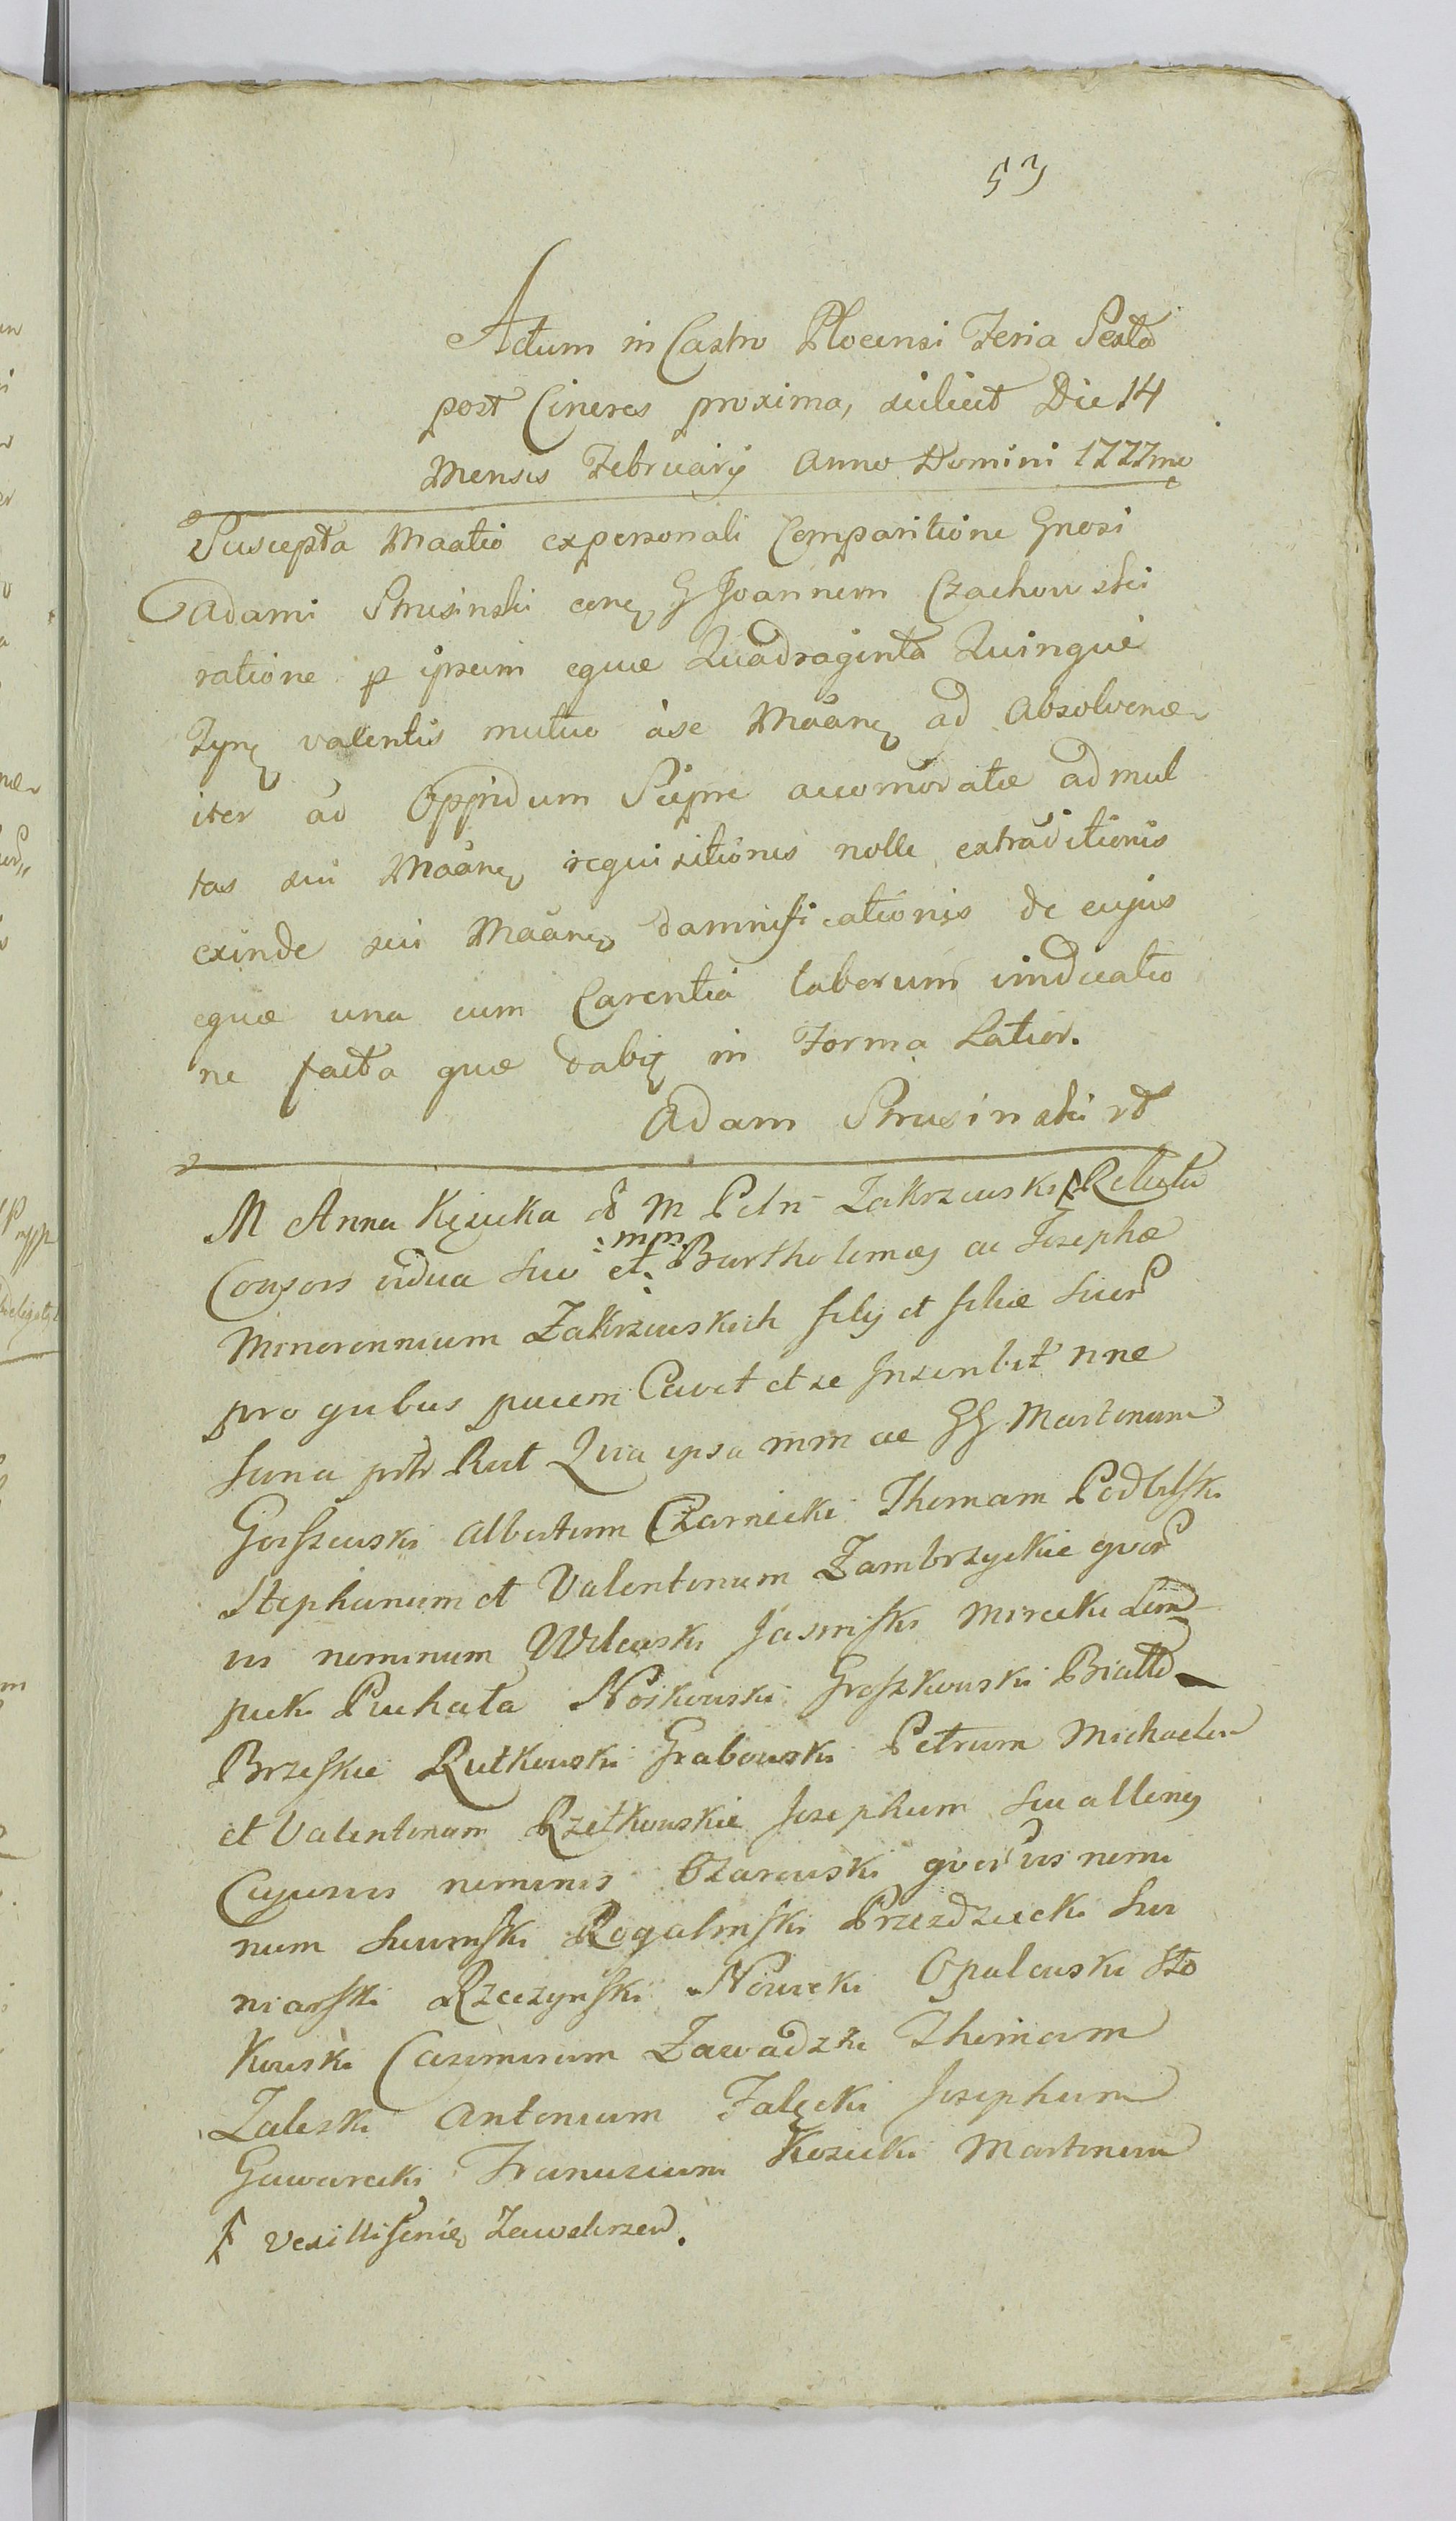 53
Actum in Castro Plocensi Feria Sexta
post Cineres proxima, scilicet Die 14
Mensis Februarij Anno Domini 1777mo
Suscepta Maatio expersonali Comparitione Gnosi
Adami Strusinski cong G Joannem Czachowski
ratione p ipsum equae Quadraginta Quinque
Fynς valentis mutuo àse Maane ad absolvend
iter ad Oppidum Sicpne accomodatae admul
tas sui Maane requisitiones nolle extraditionis
exinde sui Maane damnificationis de cujus
equae una cum Carentia laborum vindicatio
ne facta quae dabit in Forma Latior.
Adam Strusinski rt
M Anna Kęsicka M Petri Zakrzewski ⨍ Relicta
Consors vidua suo et mm Bartholomaei ac Josephae
Minorennium Zakrzewskich filij et filiae suor
pro quibus pacem Cavet et se Inscribit nne
suna prtr Rect Qua ipsa mm ac GG Martinum
Gosszewski Albertum Czarnecki Thomam Podbilski
Stephanum et Valentinum Zambrzyckie quor
vis nominum Wilewski Jasinski Mirecki Lem
picki Puchała Noskowski Groszkowski Biatto
Brzeskie Rutkowski Grabowski Petrum Michaelem
et Valentinum Rzetkowskie Josephum seu alterius
Cujusvis nominis Ozarowski quorvis nomi
num Suminski Rogalinski Przezdziecki Sur
niarski Rzeczynski Nowicki Opalewski Sto
kowski Casimirum Zawadzki Thomam
Zaleski Antonium Falęcki Josephum
Gawarecki Franciscum Kozicki Martinum
⨍ vexilliferiię Zawskrzen.